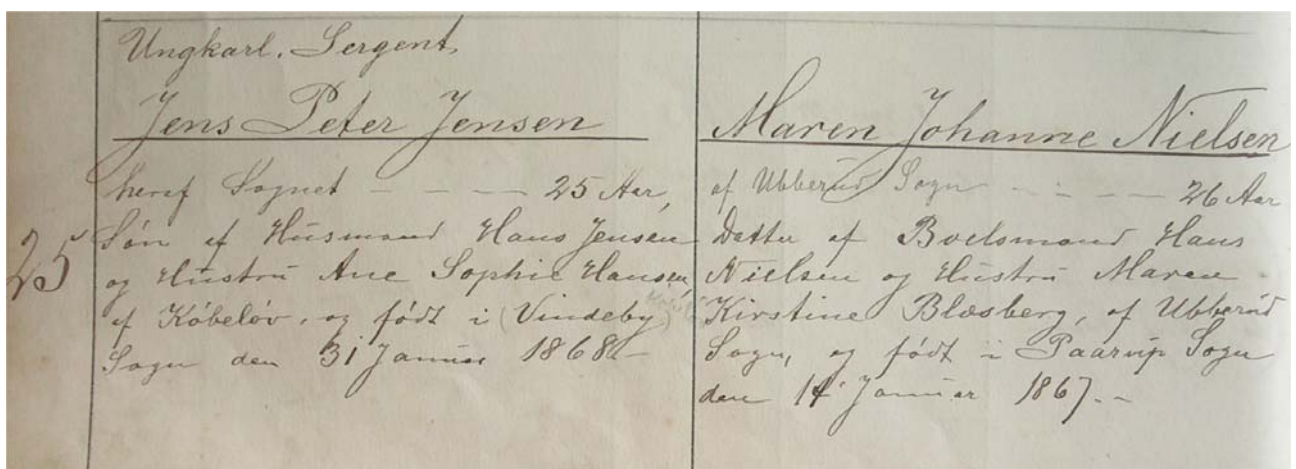 Ungkarl. Sergent,
Jens Peter Jensen
heraf Sognet - - - - 25 Aar,
25
Søn af Husmand Hans Jensen
og Hustru Ane Sophie Hansen,
af Købeløv, og født i (Vindeby)
Sogn den 31 Januar 1868 -
Maren Johanne Nielsen
af Ubberud Sogn - - - - 26 Aar
Datter af Boelsmand Hans
Nielsen og Hustru Maren
Kirstine Blæsberg, af Ubberud
Sogn, og født i Paarup Sogn
den 14 Januar 1867. -